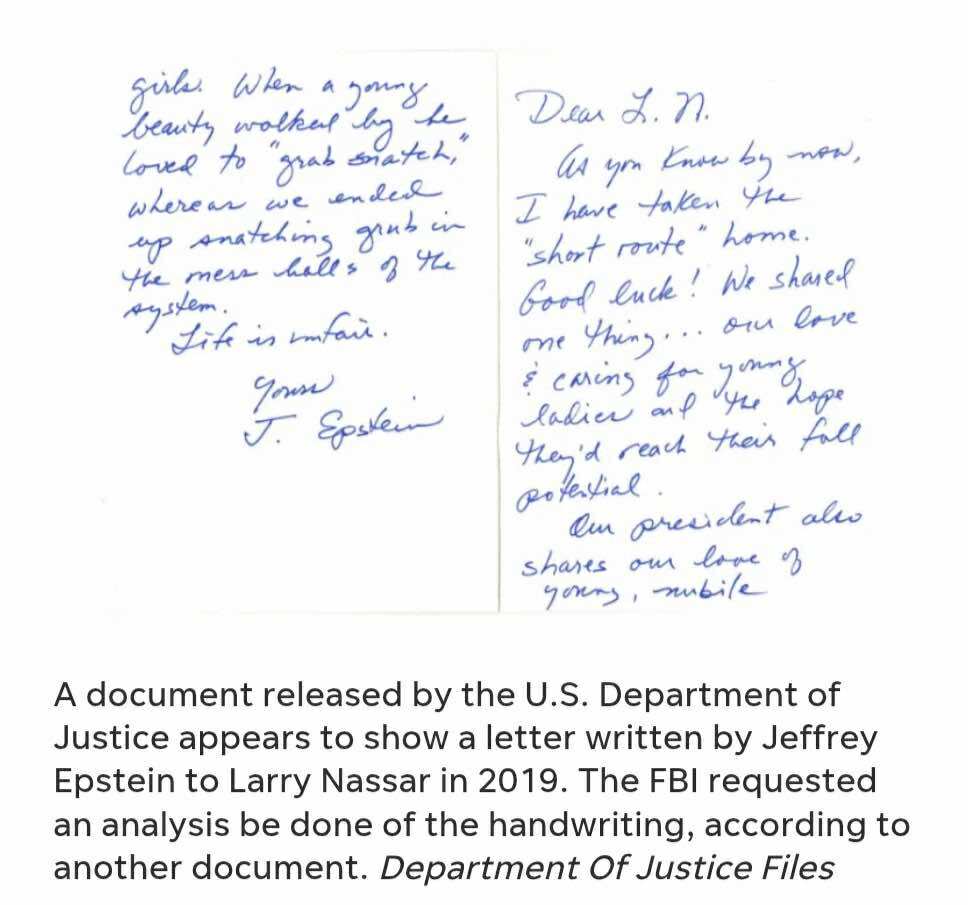 Dear L. N.
As you know by now,
I have taken the
"short route" home.
Good luck! We shared
one thing... our love
& caring for young
ladies and the hope
they'd reach their full
potential.
Our president also
shares our love of
young, nubile
girls. When a young
beauty walked by he
loved to "grab snatch,"
whereas we ended
up snatching grub in
the mess halls of the
system.
Life is unfair.
Yours
J. Epstein
A document released by the U.S. Department of
Justice appears to show a letter written by Jeffrey
Epstein to Larry Nassar in 2019. The FBI requested
an analysis be done of the handwriting, according to
another document. Department Of Justice Files